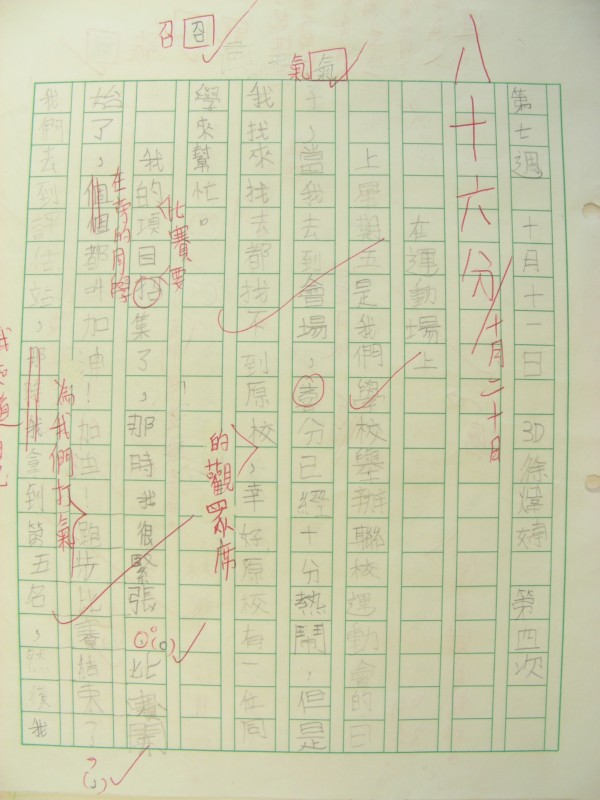 第七週 十月十一日 3D 第四次
八十六分 十月二十日
在運動場上
上星期五是我們學校舉辦聯校運動會的日
子，當我去到會場，分已經十分熱鬧，但是
氣
氣
我找來找去都找不到原校，幸好原校有一位同
的觀眾席
學來幫忙。
召
召
我的項目招集了，那時我很緊張
比賽要
始了，個個都叫加油！加油！跑步比賽結束了
在旁的同學
為我們打氣
我們去到評估站，拿到第五名，然後我